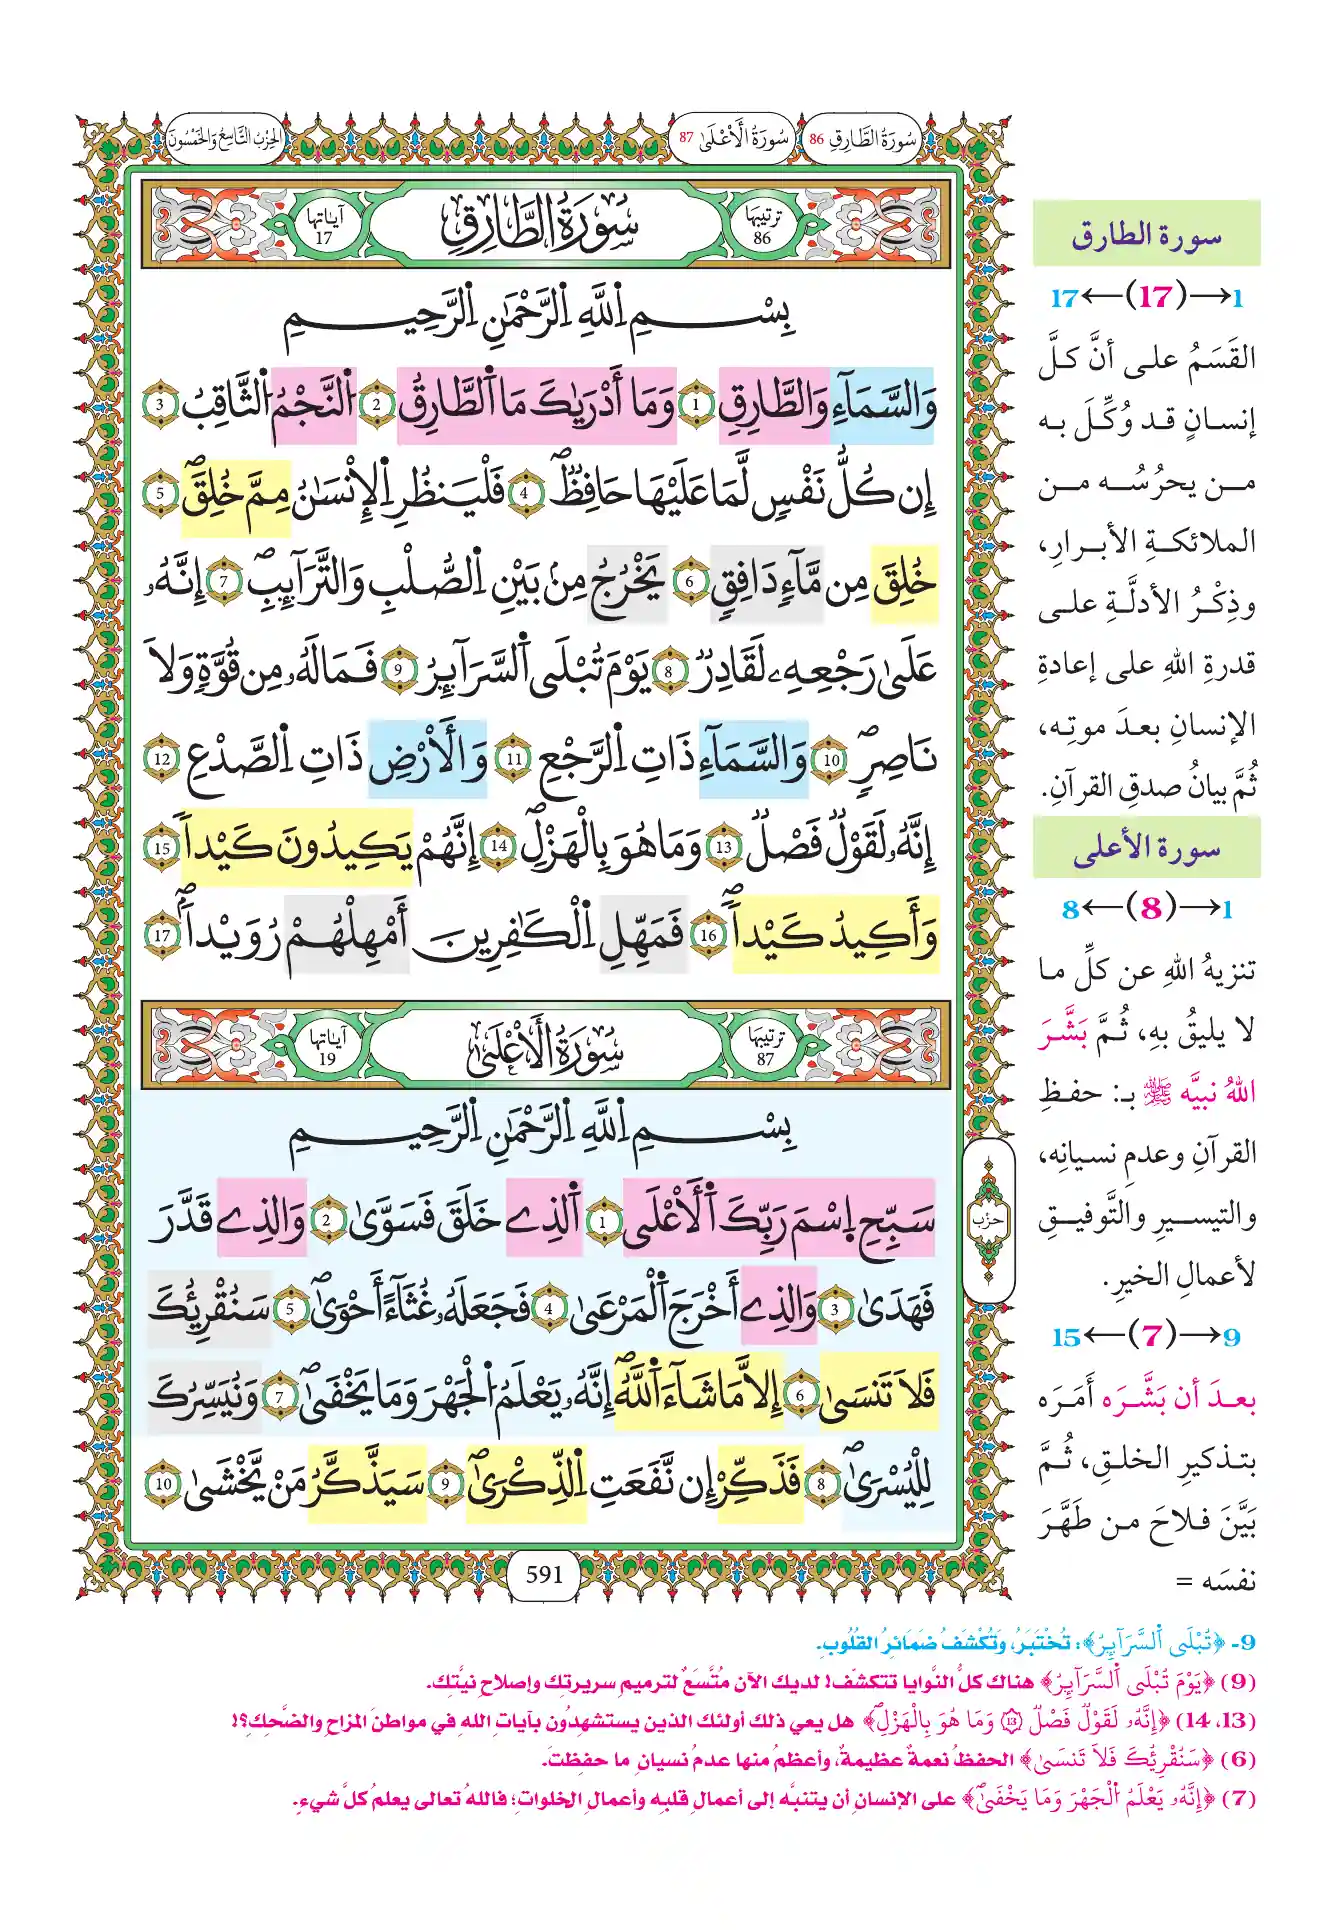 سُورَةُ الطَّارِقِ 86 سُورَةُ الْأَعْلَىٰ 87 الحِزْبُ التَّاسِعُ وَالخَمْسُونَ
ترتيبها 86 سُورَةُ الطَّارِقِ آياتها 17
بِسْمِ اِللَّهِ اِلرَّحْمَٰنِ اِلرَّحِيمِ
وَالسَّمَآءِ وَالطَّارِقِ 1 وَمَا أَدْرَيٰكَ مَا اَلطَّارِقُ 2 اُلنَّجْمُ اُلثَّاقِبُ 3
إِن كُلُّ نَفْسٖ لَّمَا عَلَيْهَا حَافِظٞ 4 فَلْيَنظُرِ اِلْإِنسَٰنُ مِمَّ خُلِقَ 5
خُلِقَ مِن مَّآءٖ دَافِقٖ 6 يَخْرُجُ مِنۢ بَيْنِ اِلصُّلْبِ وَالتَّرَآئِبِ 7 إِنَّهُۥ
عَلَىٰ رَجْعِهِۦ لَقَادِرٞ 8 يَوْمَ تُبْلَى اَلسَّرَآئِرُ 9 فَمَا لَهُۥ مِن قُوَّةٖ وَلَا
نَاصِرٖ 10 وَالسَّمَآءِ ذَاتِ اِلرَّجْعِ 11 وَالْأَرْضِ ذَاتِ اِلصَّدْعِ 12
إِنَّهُۥ لَقَوْلٞ فَصْلٞ 13 وَمَا هُوَ بِالْهَزْلِ 14 إِنَّهُمْ يَكِيدُونَ كَيْداٗ 15
وَأَكِيدُ كَيْداٗ 16 فَمَهِّلِ اِلْكَٰفِرِينَ أَمْهِلْهُمْ رُوَيْداٗ 17
ترتيبها 87 سُورَةُ الْأَعْلَىٰ آياتها 19
بِسْمِ اِللَّهِ اِلرَّحْمَٰنِ اِلرَّحِيمِ
سَبِّحِ اِسْمَ رَبِّكَ اَلْأَعْلَى 1 اَلذِے خَلَقَ فَسَوَّىٰ 2 وَالذِے قَدَّرَ
فَهَدَىٰ 3 وَالذِے أَخْرَجَ اَلْمَرْعَىٰ 4 فَجَعَلَهُۥ غُثَآءً أَحْوَىٰ 5 سَنُقْرِئُكَ
فَلَا تَنسَىٰ 6 إِلَّا مَا شَآءَ اَللَّهُ إِنَّهُۥ يَعْلَمُ اُلْجَهْرَ وَمَا يَخْفَىٰ 7 وَنُيَسِّرُكَ
لِلْيُسْرَىٰ 8 فَذَكِّرْ إِن نَّفَعَتِ اِلذِّكْرَىٰ 9 سَيَذَّكَّرُ مَنْ يَّخْشَىٰ 10
حزب
591
سورة الطارق
1→(17)←17
القَسَمُ على أنَّ كلَّ
إنسانٍ قد وُكِّلَ به
من يحرُسُه من
الملائكةِ الأبرارِ،
وذِكْرُ الأدلَّةِ على
قدرةِ اللهِ على إعادةِ
الإنسانِ بعدَ موتِه،
ثُمَّ بيانُ صدقِ القرآنِ.
سورة الأعلى
1→(8)←8
تنزيهُ اللهِ عن كلِّ ما
لا يليقُ بهِ، ثُمَّ بَشَّرَ
اللهُ نبيَّه ﷺ بـ: حفظِ
القرآنِ وعدمِ نسيانِه،
والتيسيرِ والتَّوفيقِ
لأعمالِ الخيرِ.
9→(7)←15
بعدَ أن بَشَّرَه أمَرَه
بتذكيرِ الخلقِ، ثُمَّ
بَيَّنَ فلاحَ من طَهَّرَ
نفسَه =
9- ﴿تُبْلَى اَلسَّرَآئِرُ﴾: تُخْتَبَرُ، وَتُكْشَفُ ضَمَائِرُ القُلُوبِ.
(9) ﴿يَوْمَ تُبْلَى اَلسَّرَآئِرُ﴾ هناك كلُّ النَّوايا تتكشف! لديك الآن مُتَّسَعٌ لترميمِ سريرتِك وإصلاحِ نيَّتِك.
(13، 14) ﴿إِنَّهُۥ لَقَوْلٞ فَصْلٞ 13 وَمَا هُوَ بِالْهَزْلِ﴾ هل يعي ذلك أولئك الذين يستشهدُون بآياتِ اللهِ في مواطنَ المزاحِ والضَّحِكِ؟!
(6) ﴿سَنُقْرِئُكَ فَلَا تَنسَىٰ﴾ الحفظُ نعمةٌ عظيمةٌ، وأعظمُ منها عدمُ نسيانِ ما حفِظتَ.
(7) ﴿إِنَّهُۥ يَعْلَمُ اُلْجَهْرَ وَمَا يَخْفَىٰ﴾ على الإنسانِ أن يتنبَّه إلى أعمالِ قلبِه وأعمالِ الخلواتِ؛ فاللهُ تعالى يعلمُ كلَّ شيءٍ.